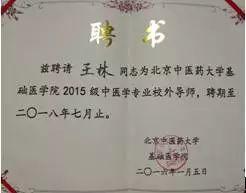 聘书
兹聘请 王林 同志为北京中医药大学基
础医学院 2015 级中医学专业校外导师，聘期至
二〇一八年七月止。
北京中医药大学
基础医学院
二〇一六年一月五日